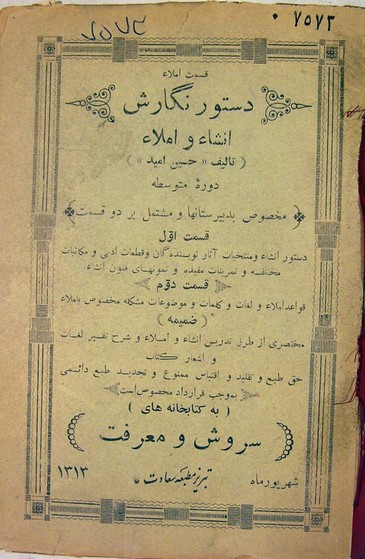 ۷۵۷۳
۰ ۷۵۷۳
قسمت املاء
دستور نگارش
انشاء و املاء
( تألیف « حسین امید » )
دورهٔ متوسطه
مخصوص بدبیرستانها و مشتمل بر دو قسمت
قسمت اول
دستور انشاء و منتخبات آثار نویسنده گان و قطعات ادبی و مکاتبات
مختلفه و تمرینات مفیده و نمونهای فنون انشاء
قسمت دوم
قواعد املاء و لغات و کلمات و موضوعات مشکله مخصوص باملاء
( ضمیمه )
مختصری از طرز تدریس انشاء و املاء و شرح تفسیر لغات
و اشعار کتاب
حق طبع و تقلید و اقتباس ممنوع و تجدید طبع دائمی
بموجب قرارداد مخصوص است
( به کتابخانه های )
سروش و معرفت
شهریور ماه تبریز مطبعه سعادت ۱۳۱۳